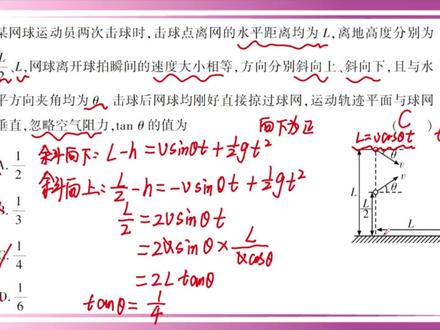 某网球运动员两次击球时,击球点离网的水平距离均为 L,离地高度分别为
L/2、L,网球离开球拍瞬间的速度大小相等,方向分别斜向上、斜向下,且与水
平方向夹角均为 θ. 击球后网球均刚好直接掠过球网,运动轨迹平面与球网
垂直,忽略空气阻力,tan θ 的值为 ( C )
向下为正
L=vcosθt
A. 1/2
斜向下: L-h=vsinθt+½gt²
斜向上: L/2-h=-vsinθt+½gt²
B. 1/3
L/2=2vsinθt
C. 1/4
=2vsinθ×L/vcosθ
=2Ltanθ
D. 1/6
tanθ=1/4
θ
v
v
θ
L
L/2
L